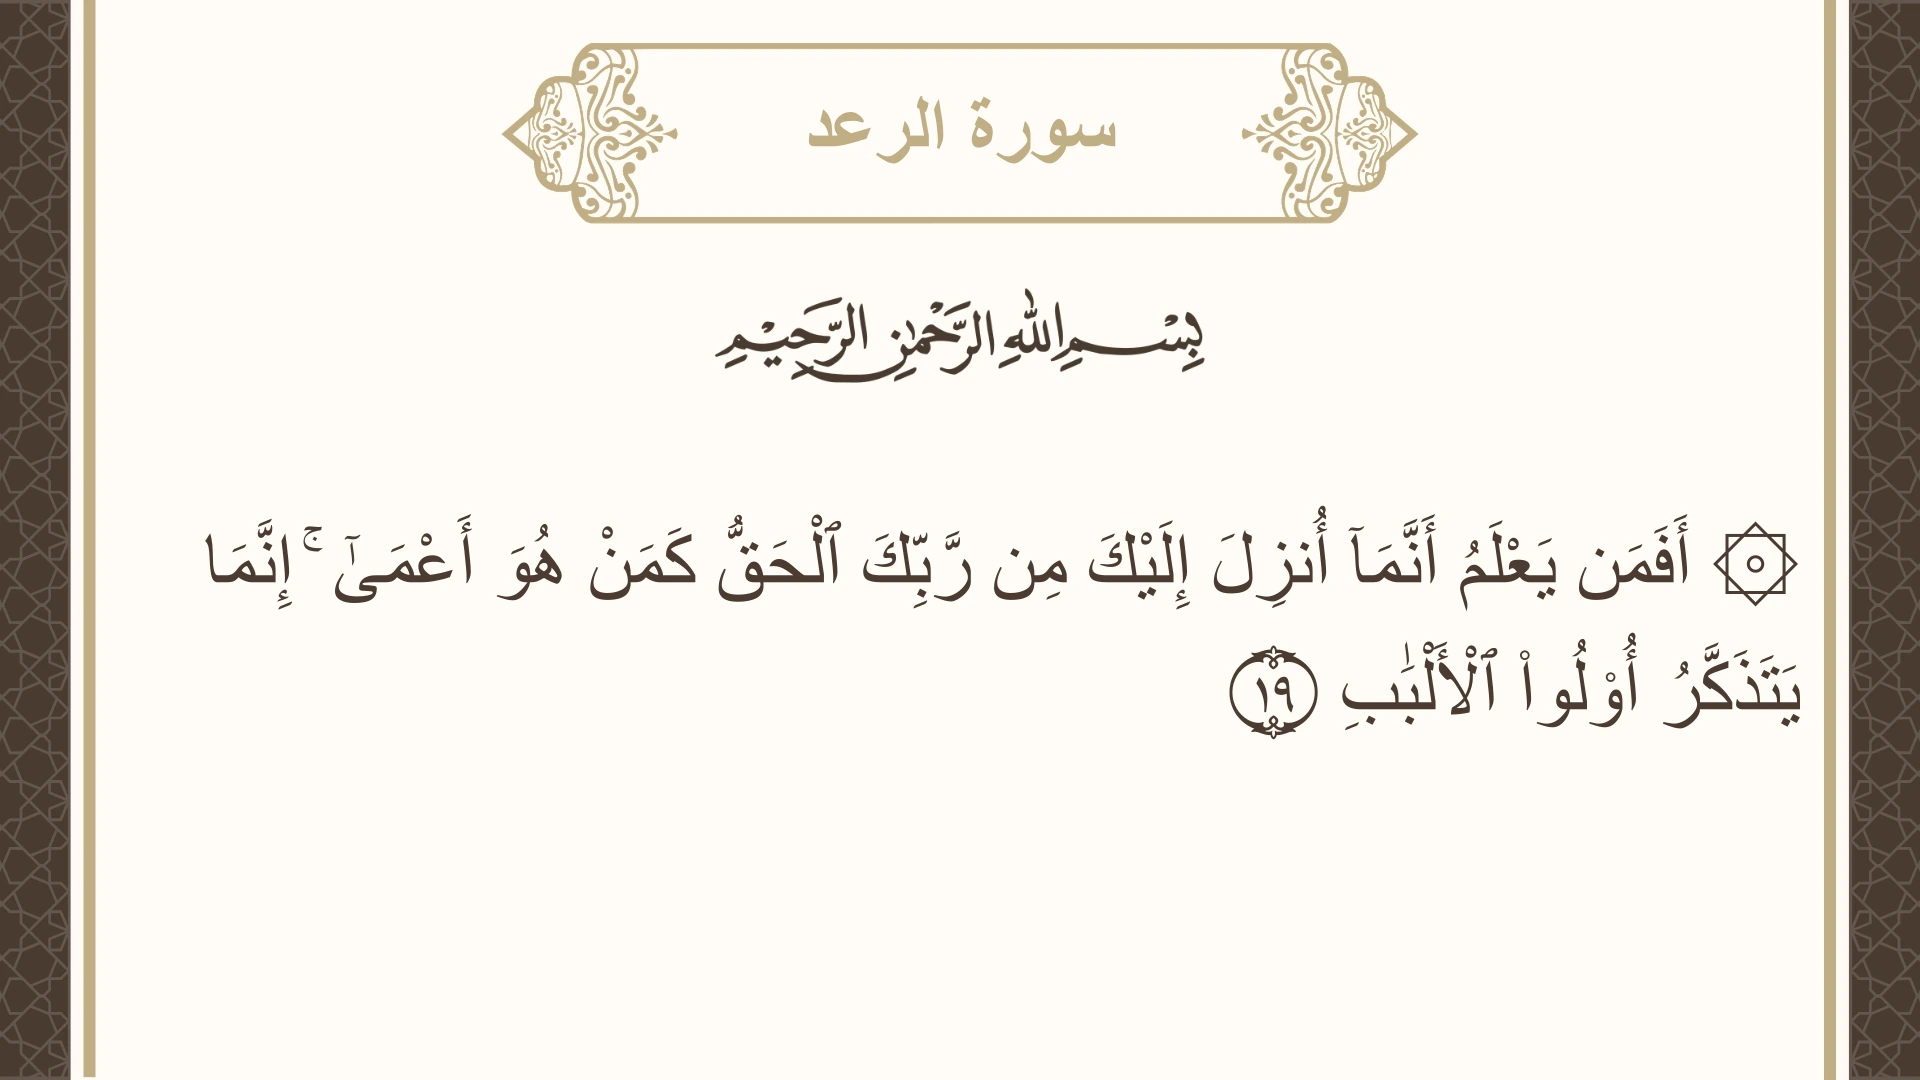 سورة الرعد
بِسْمِ اللهِ الرَّحْمٰنِ الرَّحِيْمِ
۞ أَفَمَن يَعْلَمُ أَنَّمَآ أُنزِلَ إِلَيْكَ مِن رَّبِّكَ ٱلْحَقُّ كَمَنْ هُوَ أَعْمَىٰٓ ۚ إِنَّمَا
يَتَذَكَّرُ أُو۟لُوا۟ ٱلْأَلْبَـٰبِ ١٩